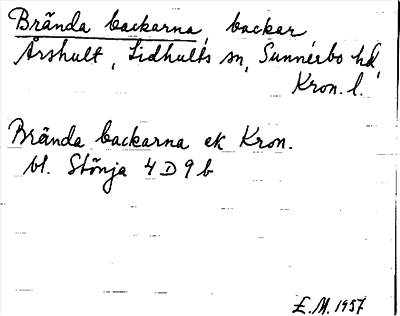 Brända backarna, backar
Årshult, Lidhults sn, Sunnerbo hd,
Kron. l.
Brända backarna ek Kron.
bl. Stönja 4 D 9 b
E.M. 1957